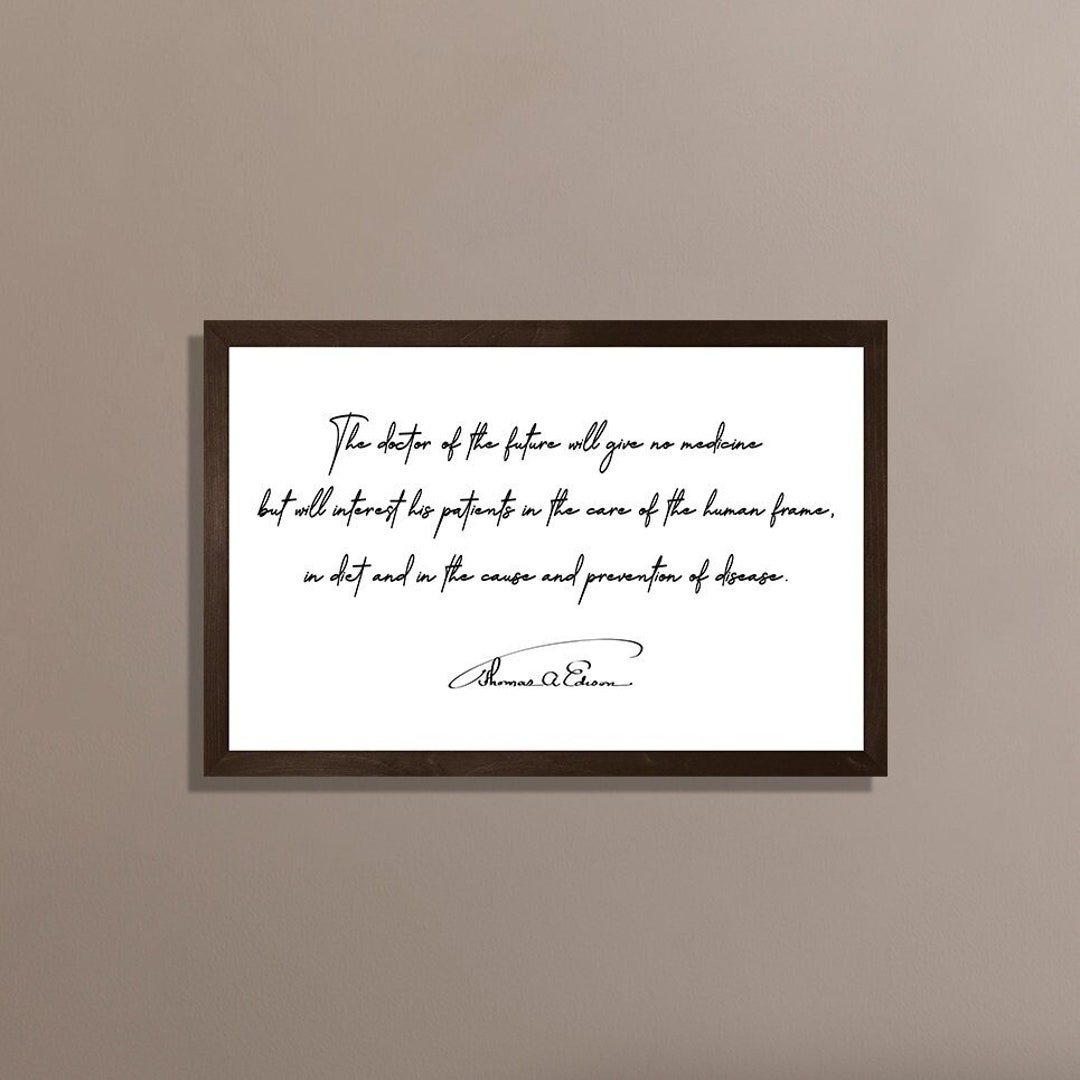 The doctor of the future will give no medicine
but will interest his patients in the care of the human frame,
in diet and in the cause and prevention of disease.
Thomas A Edison